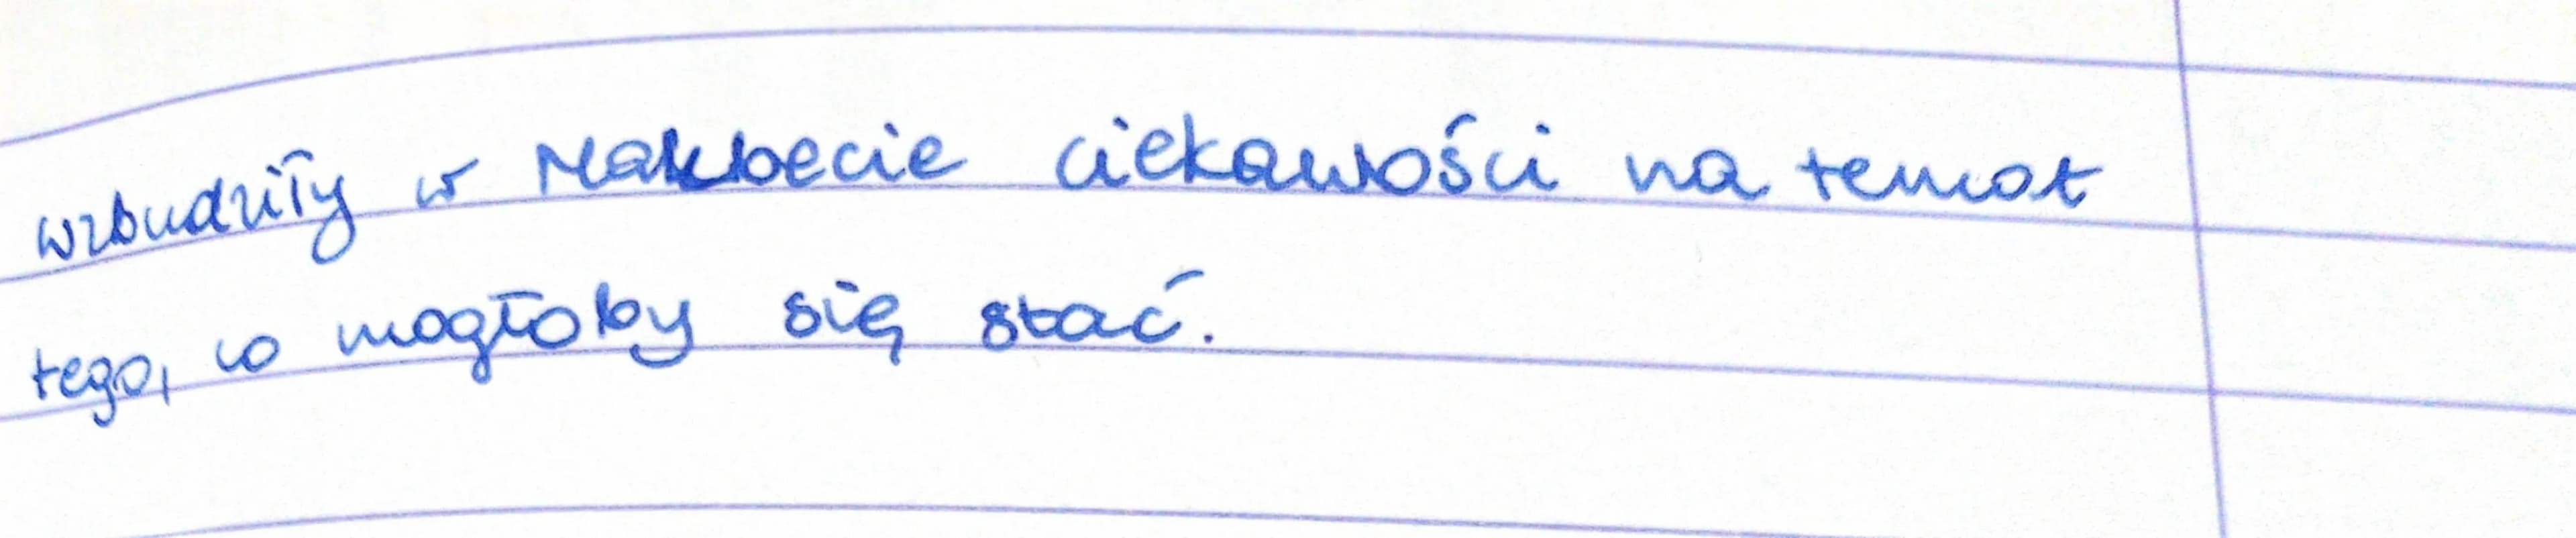 wzbudziły w Makbecie ciekawości na temat
tego, co mogłoby się stać.